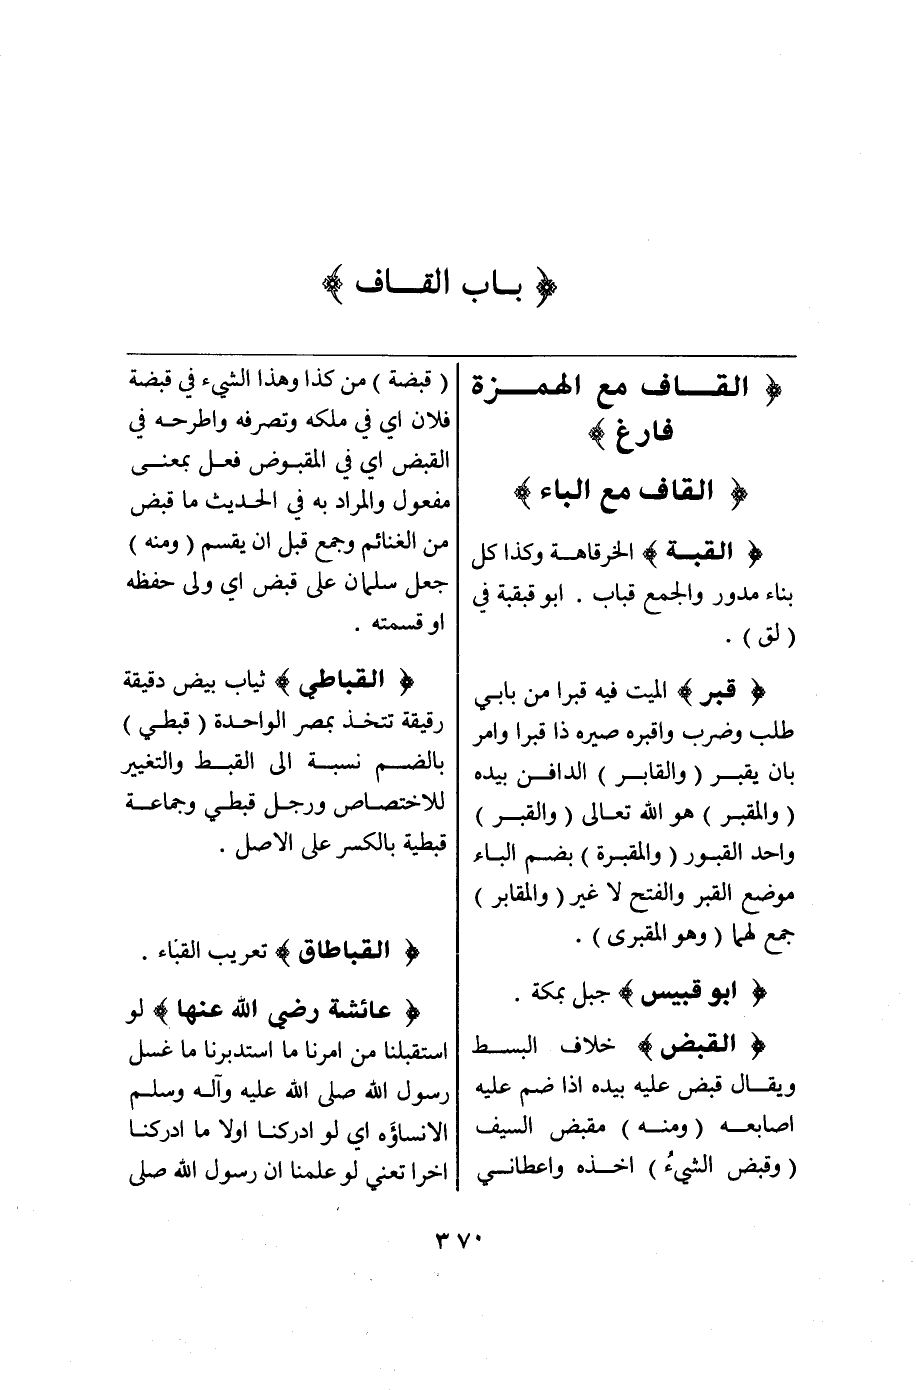 ﴿ بـاب القـــاف ﴾
﴿ القـــاف مع الهمـــزة
فارغ ﴾
﴿ القاف مع الباء ﴾
﴿ القبـة ﴾ الخرقاهـة وكذا كل
بناء مدور والجمع قباب . ابو قبقبة في
( لق ) .
﴿ قبر ﴾ الميت فيه قبرا من بابي
طلب وضرب واقبره صيره ذا قبرا وامر
بان يقبـر ( والقابـر ) الدافـن بيده
( والمقبـر ) هو الله تعـالى ( والقبـر )
واحد القبـور ( والمقبرة ) بضـم البـاء
موضع القبر والفتح لا غير ( والمقابر )
جمع لهما ( وهو المقبرى ) .
﴿ ابو قبيس ﴾ جبل بمكة .
﴿ القبض ﴾ خلاف البســط
ويقـال قبض عليه بيده اذا ضم عليه
اصابعـه ( ومنـه ) مقبض السيف
( وقبض الشيءُ ) اخـذه واعطانـي
( قبضة ) من كذا وهذا الشيء في قبضة
فلان اي في ملكه وتصرفه واطرحـه في
القبض اي في المقبـوض فعـل بمعنـى
مفعول والمراد به في الحديث ما قبض
من الغنائم وجمع قبل ان يقسم ( ومنه )
جعل سلمان على قبض اي ولى حفظه
او قسمته .
﴿ القباطي ﴾ ثياب بيض دقيقة
رقيقة تتخذ بمصر الواحدة ( قبطـي )
بالضـم نسبـة الى القبـط والتغيير
للاختصـاص ورجـل قبطـي وجماعـة
قبطية بالكسر على الاصل .
﴿ القباطاق ﴾ تعريب القباء .
﴿ عائشة رضي الله عنها ﴾ لو
استقبلنا من امرنا ما استدبرنا ما غسل
رسول الله صلى الله عليه وآلـه وسلـم
الانساؤه اي لو ادركنـا اولا ما ادركنـا
اخرا تعني لو علمنا ان رسول الله صلى
٣٧٠